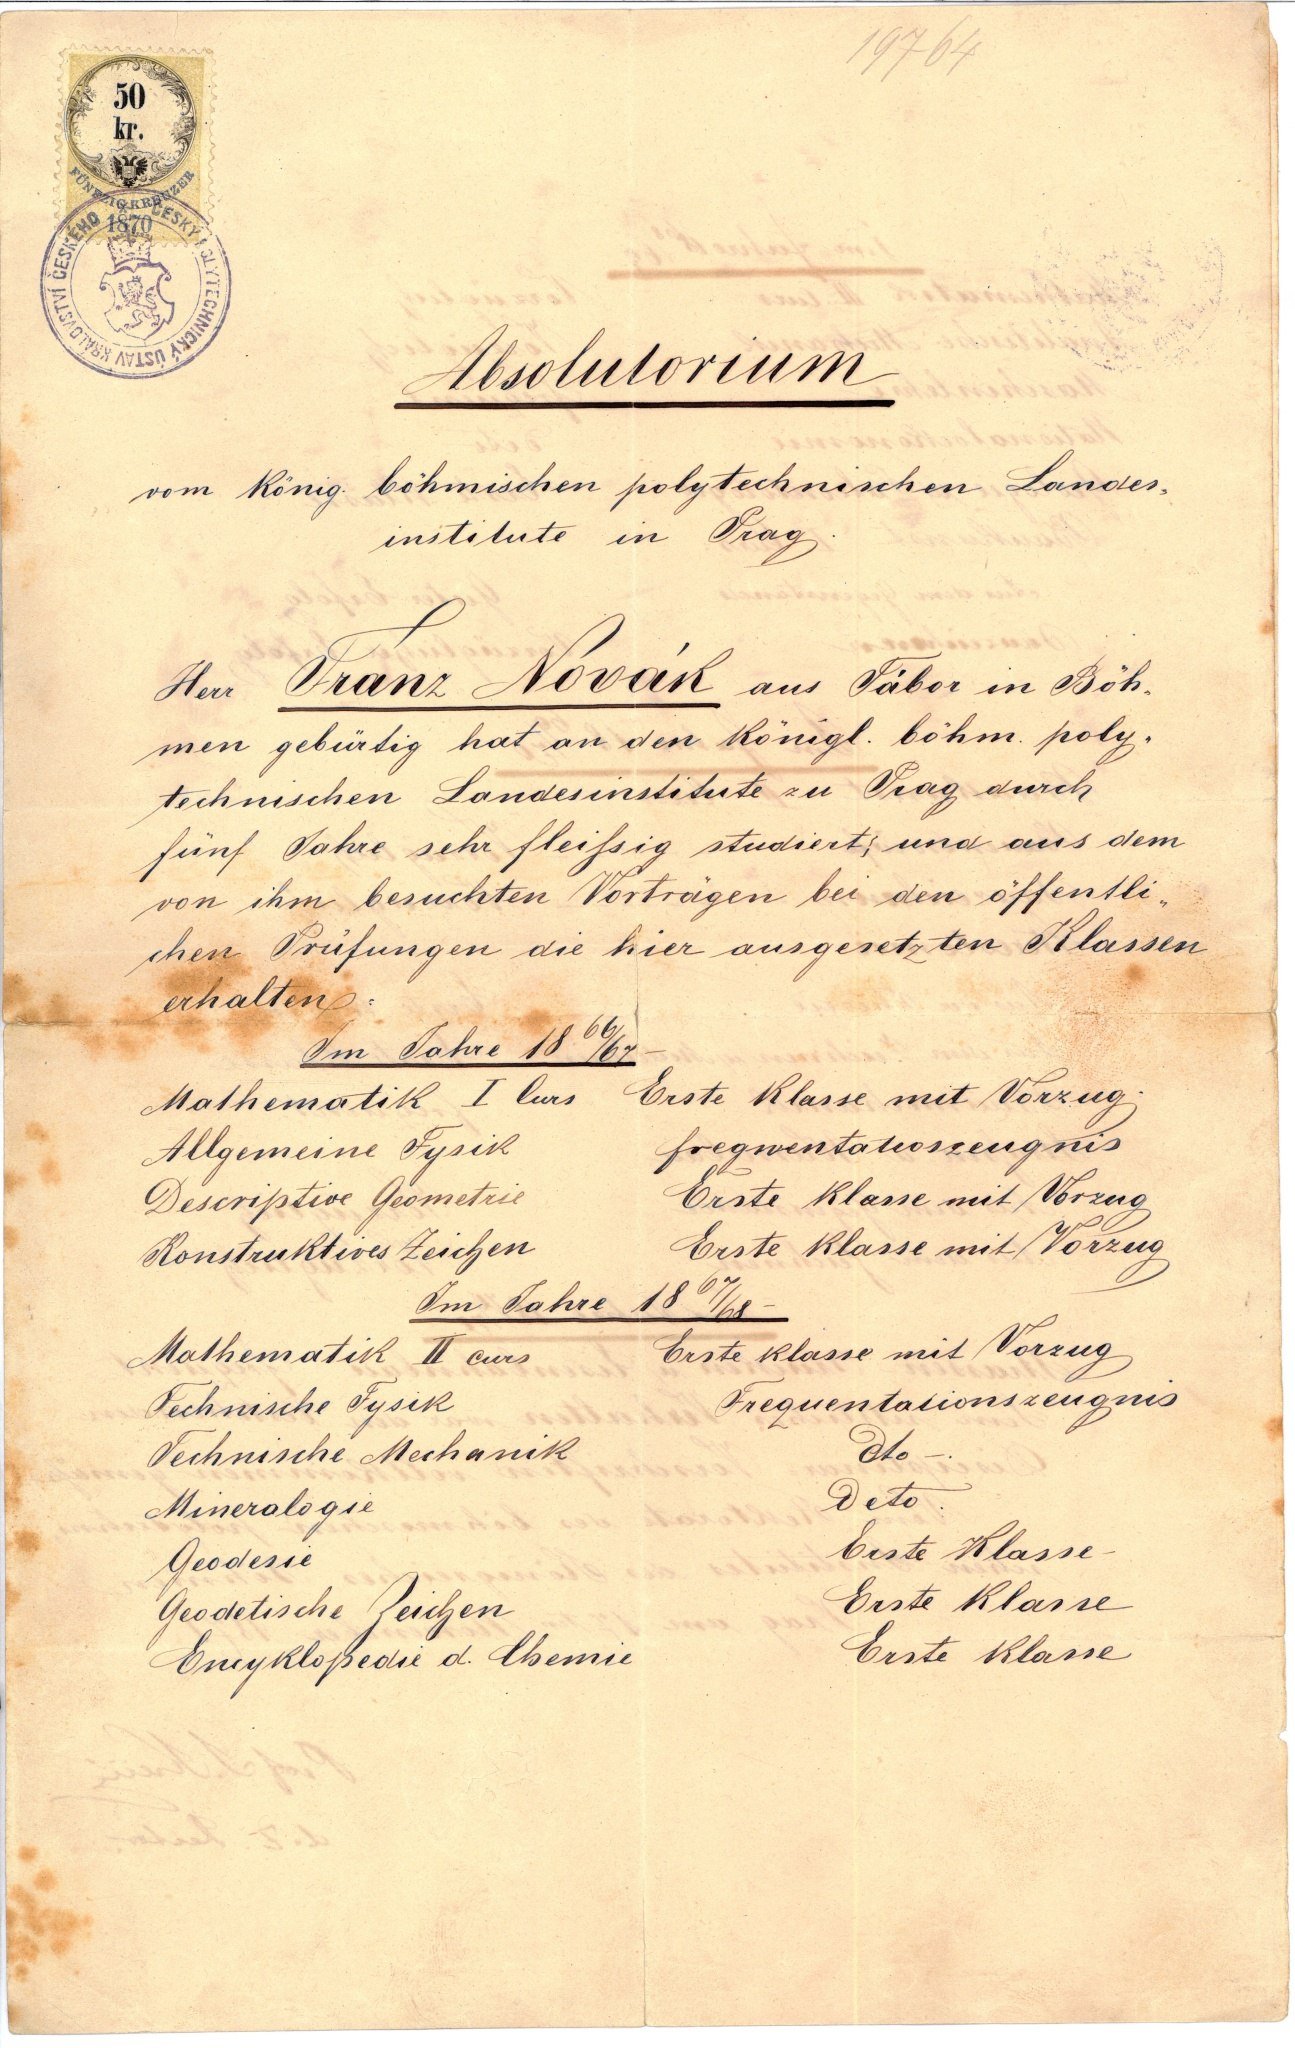 19764
50
kr.
FÜNFZIG KREUZER
1870
ČESKÝ POLYTECHNICKÝ ÚSTAV KRÁLOVSTVÍ ČESKÉHO
Absolutorium
vom König. böhmischen polytechnischen Landes„
institute in Prag.
Herr Franz Novák aus Tábor in Böh„
men gebürtig hat an den Königl. böhm. poly„
technischen Landesinstitute zu Prag durch
fünf Jahre sehr fleißig studiert; und aus dem
von ihm besuchten Vorträgen bei den öffentli„
chen Prüfungen die hier ausgesetzten Klassen
erhalten:
Im Jahre 18 66/67 –
Mathematik I Curs Erste Klasse mit Vorzug.
Allgemeine Fysik freqwentatioszeugnis
Descriptive Geometrie Erste Klasse mit Vorzug
Konstruktives Zeichen Erste Klasse mit Vorzug
Im Jahre 18 67/68 –
Mathematik II curs Erste Klasse mit Vorzug
Technische Fysik Frequentationszeugnis
Technische Mechanik dto –.
Mineralogie Deto.
Geodesie Erste Klasse –
Geodetische Zeichen Erste Klasse
Encyklopedie d. Chemie Erste Klasse